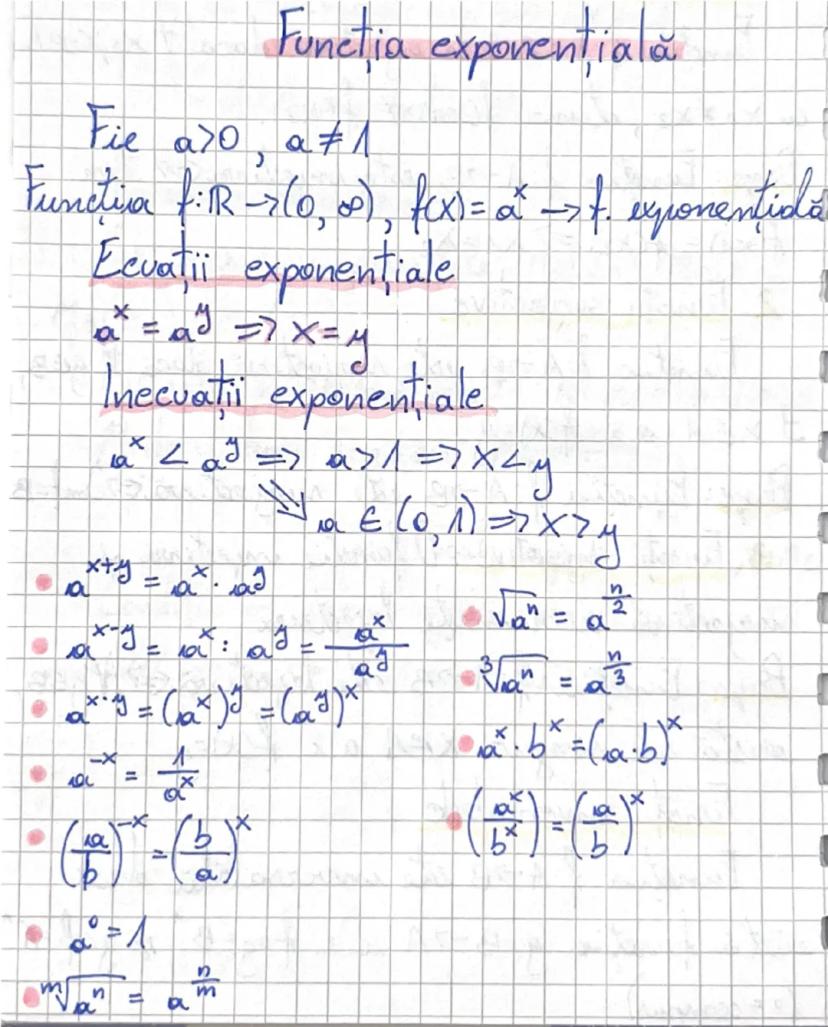 Funcția exponențială
Fie a>0, a≠1
Funcția f:ℝ→(0, ∞), f(x)=aˣ → f. exponențială
Ecuații exponențiale
aˣ = aʸ ⇒ x=y
Inecuații exponențiale
aˣ < aʸ ⇒ a>1 ⇒ x<y
⇘ a ∈ (0,1) ⇒ x>y
• a^(x+y) = aˣ · aʸ
• a^(x-y) = aˣ : aʸ = aˣ/aʸ
• a^(x·y) = (aˣ)ʸ = (aʸ)ˣ
• a^(-x) = 1/aˣ
• (a/b)^(-x) = (b/a)ˣ
• a⁰ = 1
• ᵐ√(aⁿ) = a^(n/m)
• √(aⁿ) = a^(n/2)
• ³√(aⁿ) = a^(n/3)
• aˣ · bˣ = (a·b)ˣ
• (aˣ/bˣ) = (a/b)ˣ